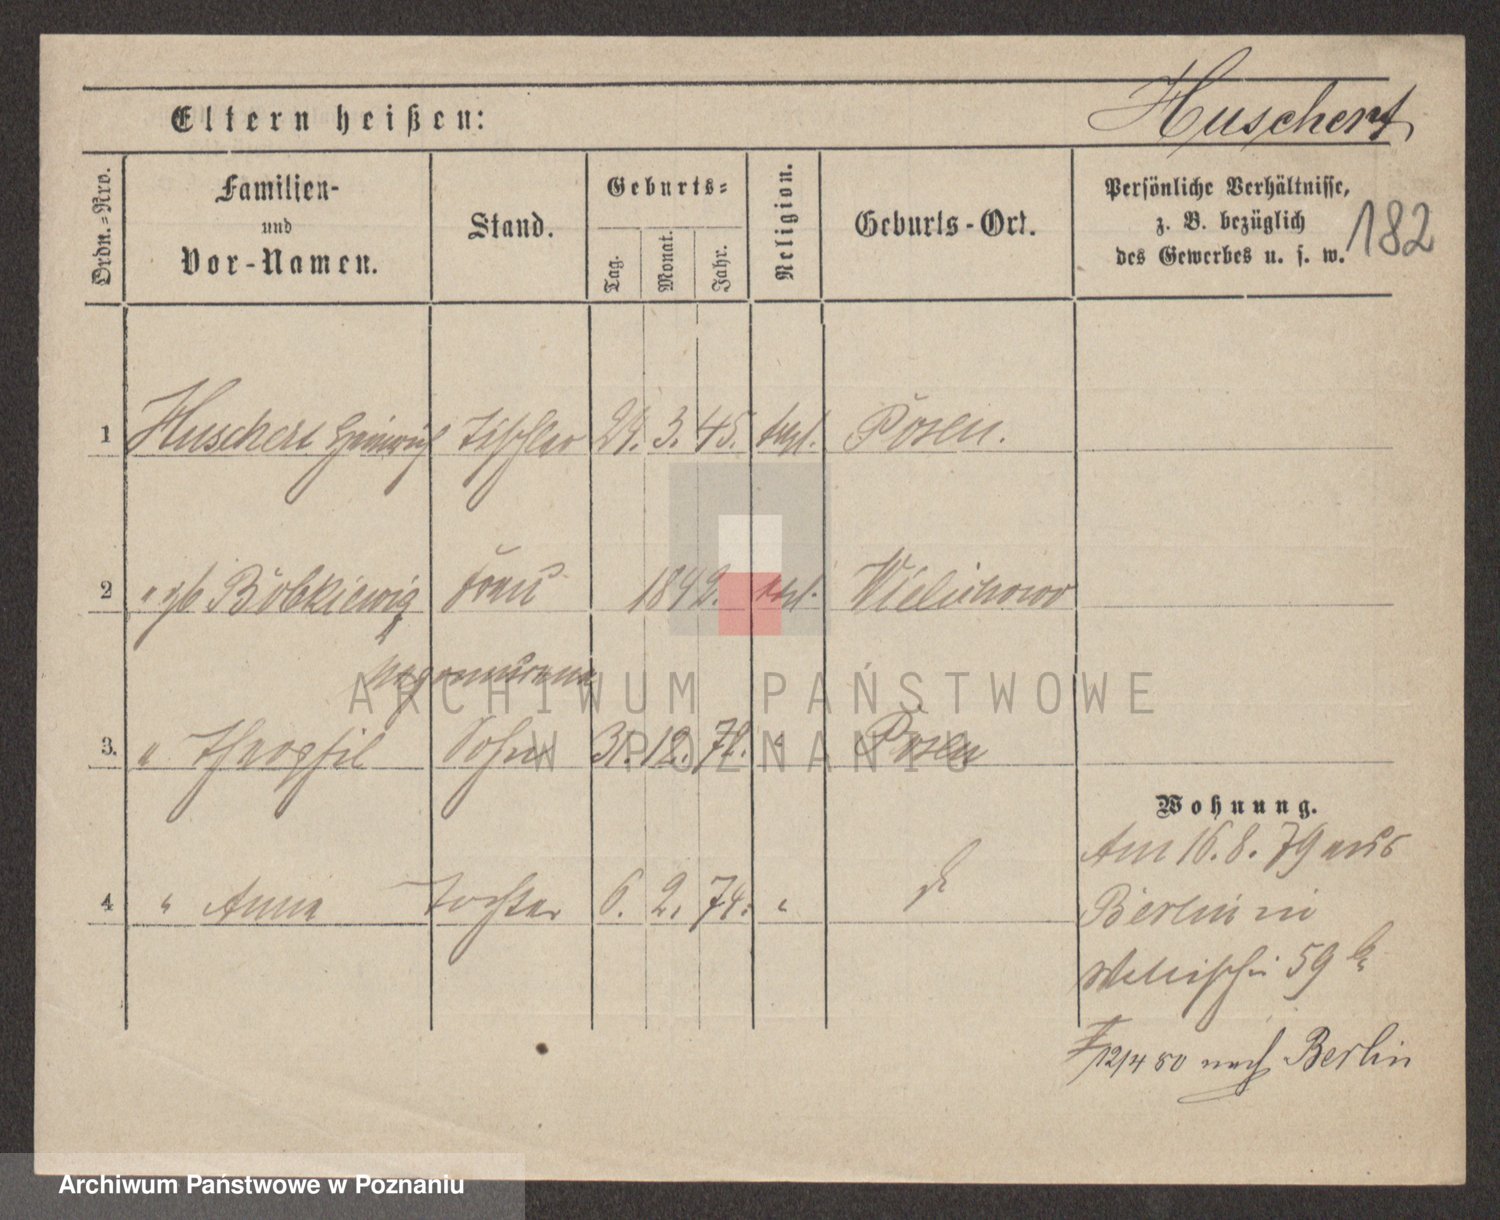 Eltern heißen: Huschert
Ordn.-Nro.
Familien-
und
Vor-Namen.
Stand.
Geburts-
Tag.
Monat.
Jahr.
Religion.
Geburts-Ort.
Persönliche Verhältnisse,
z. B. bezüglich
des Gewerbes u. s. w.
182
1 Huschert Heinrich Tischler 24. 3. 45. Posen.
2 " Frau 1842.
3. " Sohn 31. 12. 72. " Posen
4 " Anna Tochter 6. 2. 74. "
Wohnung.
Am 16. 8. 79 aus
Berlin in
Wallischei 59
12/4 80 nach Berlin
ARCHIWUM PAŃSTWOWE
W POZNANIU
Archiwum Państwowe w Poznaniu